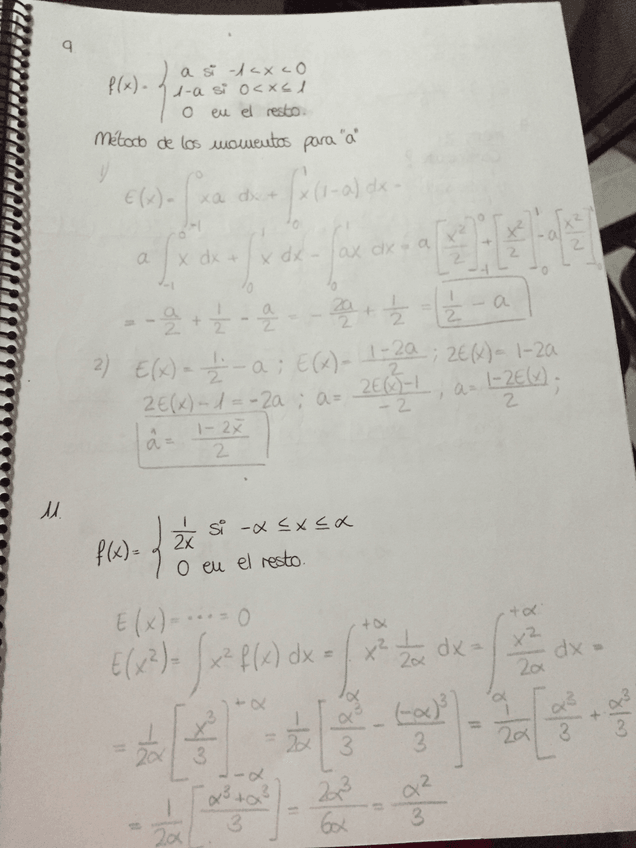 9
f(x)= { a si -1<x<0
1-a si 0<x≤1
0 en el resto.
Método de los momentos para "a"
1)
E(x)= ∫_{-1}^{0} xa dx + ∫_{0}^{1} x(1-a) dx =
a ∫_{-1}^{0} x dx + ∫_{0}^{1} x dx - ∫_{0}^{1} ax dx = a [x²/2]_{-1}^{0} + [x²/2]_{0}^{1} - a [x²/2]_{0}^{1}
= -a/2 + 1/2 - a/2 = -2a/2 + 1/2 = 1/2 - a
2) E(x)= 1/2 - a ; E(x)= (1-2a)/2 ; 2E(x)= 1-2a
2E(x)-1=-2a ; a= (2E(x)-1)/-2 , a= (1-2E(x))/2 ;
â= (1-2x̄)/2
11.
f(x)= { 1/2x si -α ≤ x ≤ α
0 en el resto.
E(x)=....= 0
E(x²)= ∫ x² f(x) dx = ∫_{α}^{+α} x² 1/2α dx = ∫_{α}^{+α} x²/2α dx =
= 1/2α [x³/3]_{-α}^{+α} = 1/2α [α³/3 - (-α)³/3] = 1/2α [α³/3 + α³/3
= 1/2α [(α³+α³)/3] = 2α³/6α = α²/3